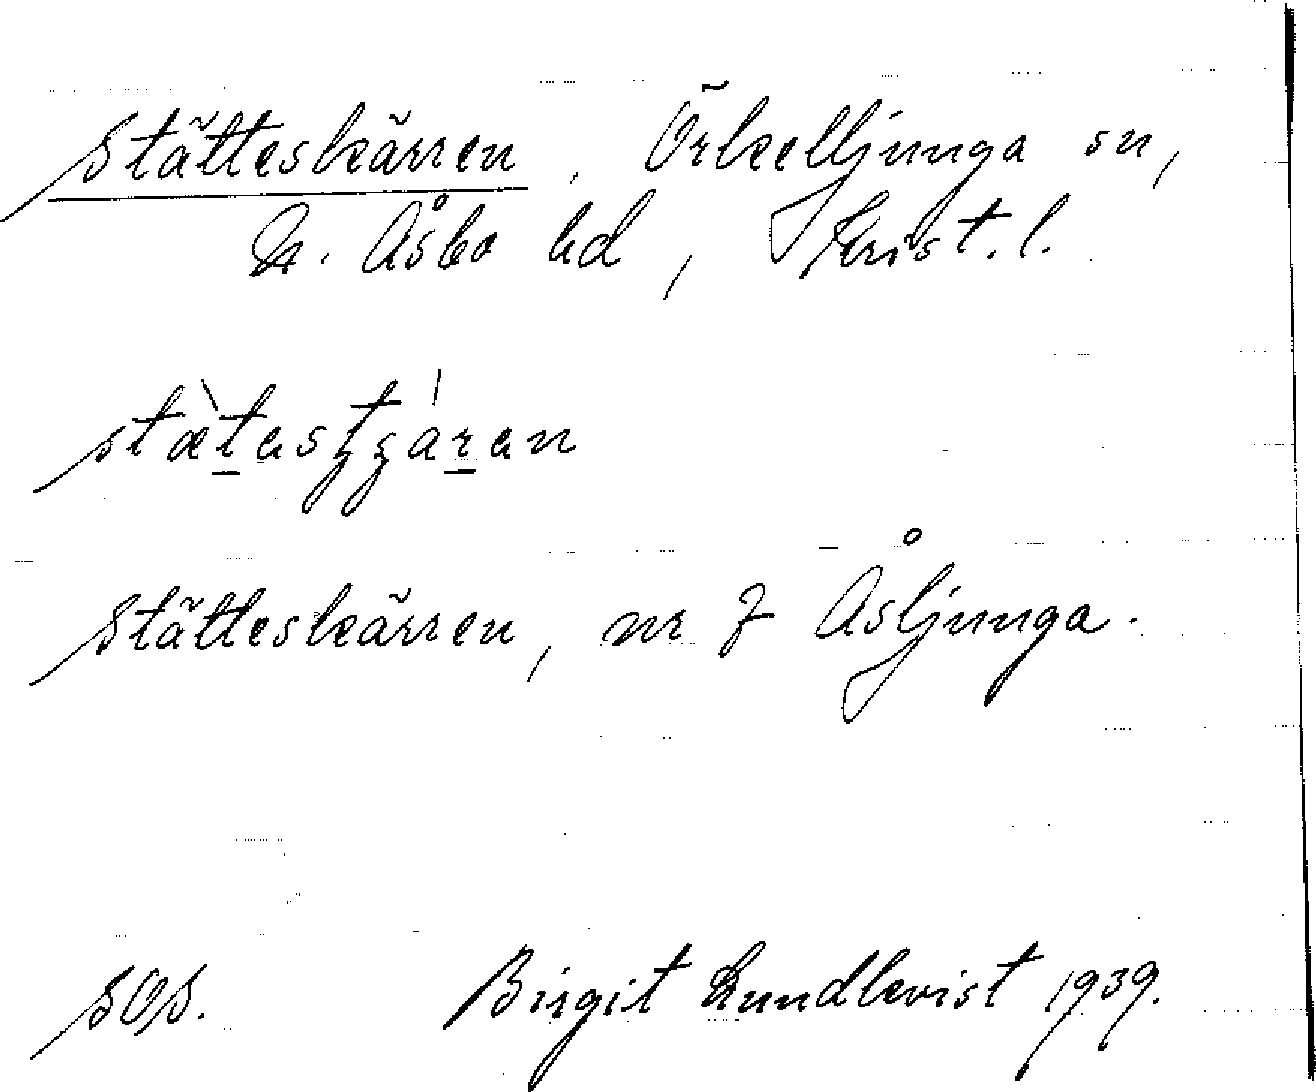 Stätteskärren, Örkelljunga sn,
N. Åsbo hd, Krist. l.
Stätteskärren, nr 7 Åsljunga.
SOS. Birgit Lundkvist 1939.